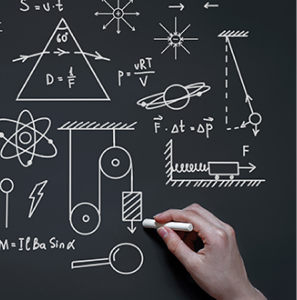 S = v·t
60°
D = 1/F
p = νRT/V
F⃗ · Δt = Δp⃗
F
M = IlBa Sinα